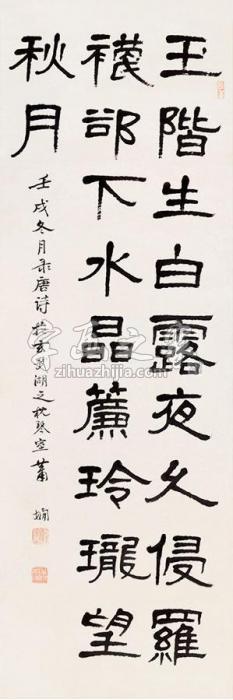 玉階生白露夜久侵羅
襪卻下水晶簾玲瓏望
秋月
壬戌冬月录唐诗於玄武湖之枕琴室萧娴
字画之家
zihuazhijia.com